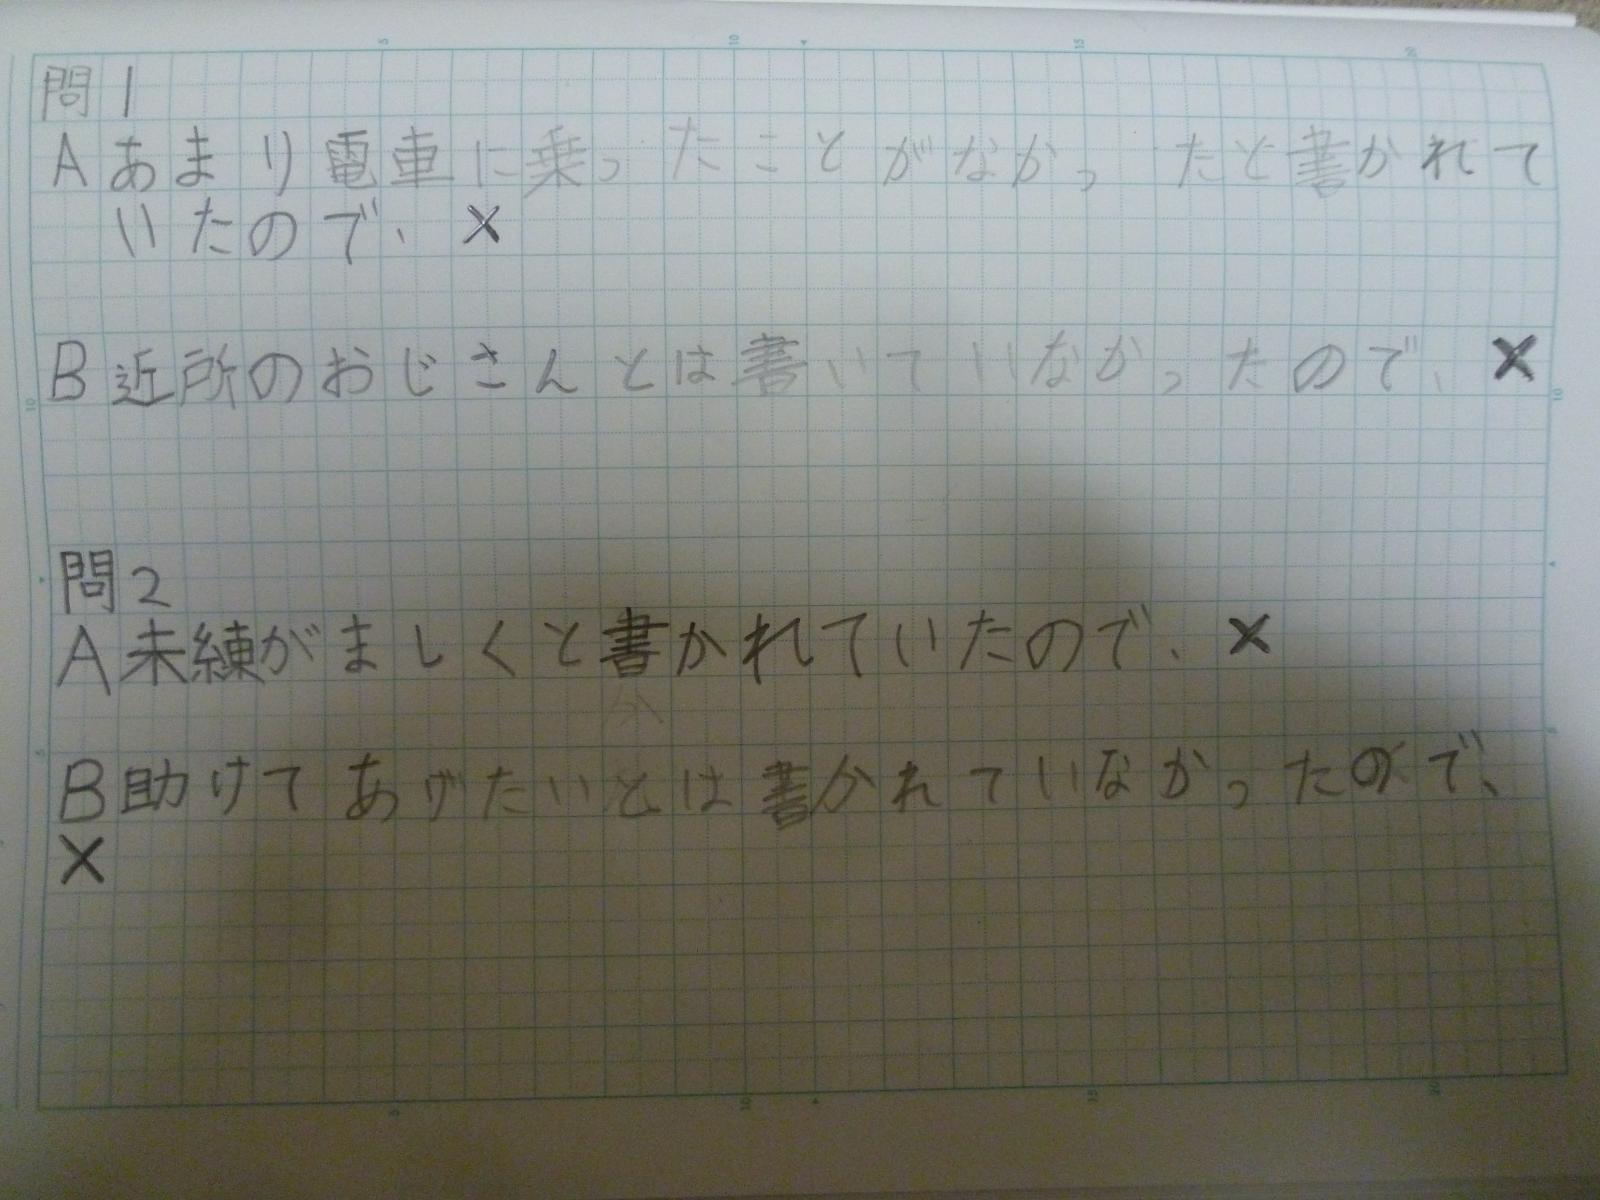 問1
Aあまり電車に乗ったことがなかったと書かれて
いたので、×
B近所のおじさんとは書いていなかったので、×
問2
A未練がましくと書かれていたので、×
B助けてあげたいとは書かれていなかったので、
×